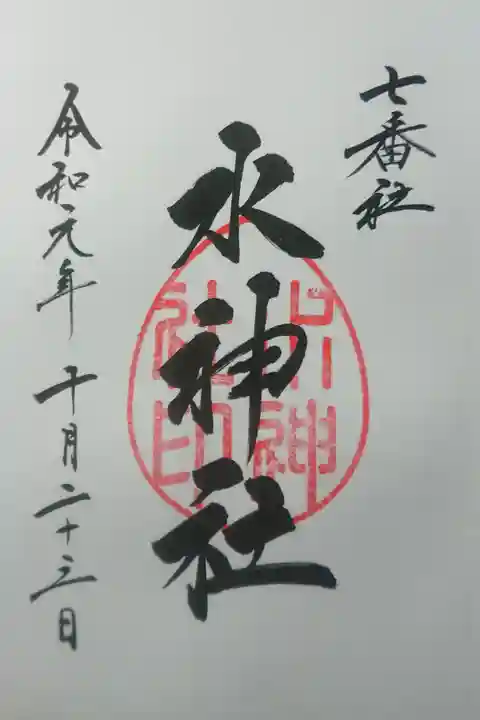 七番社
水神社
令和元年 十月二十三日
水神社印